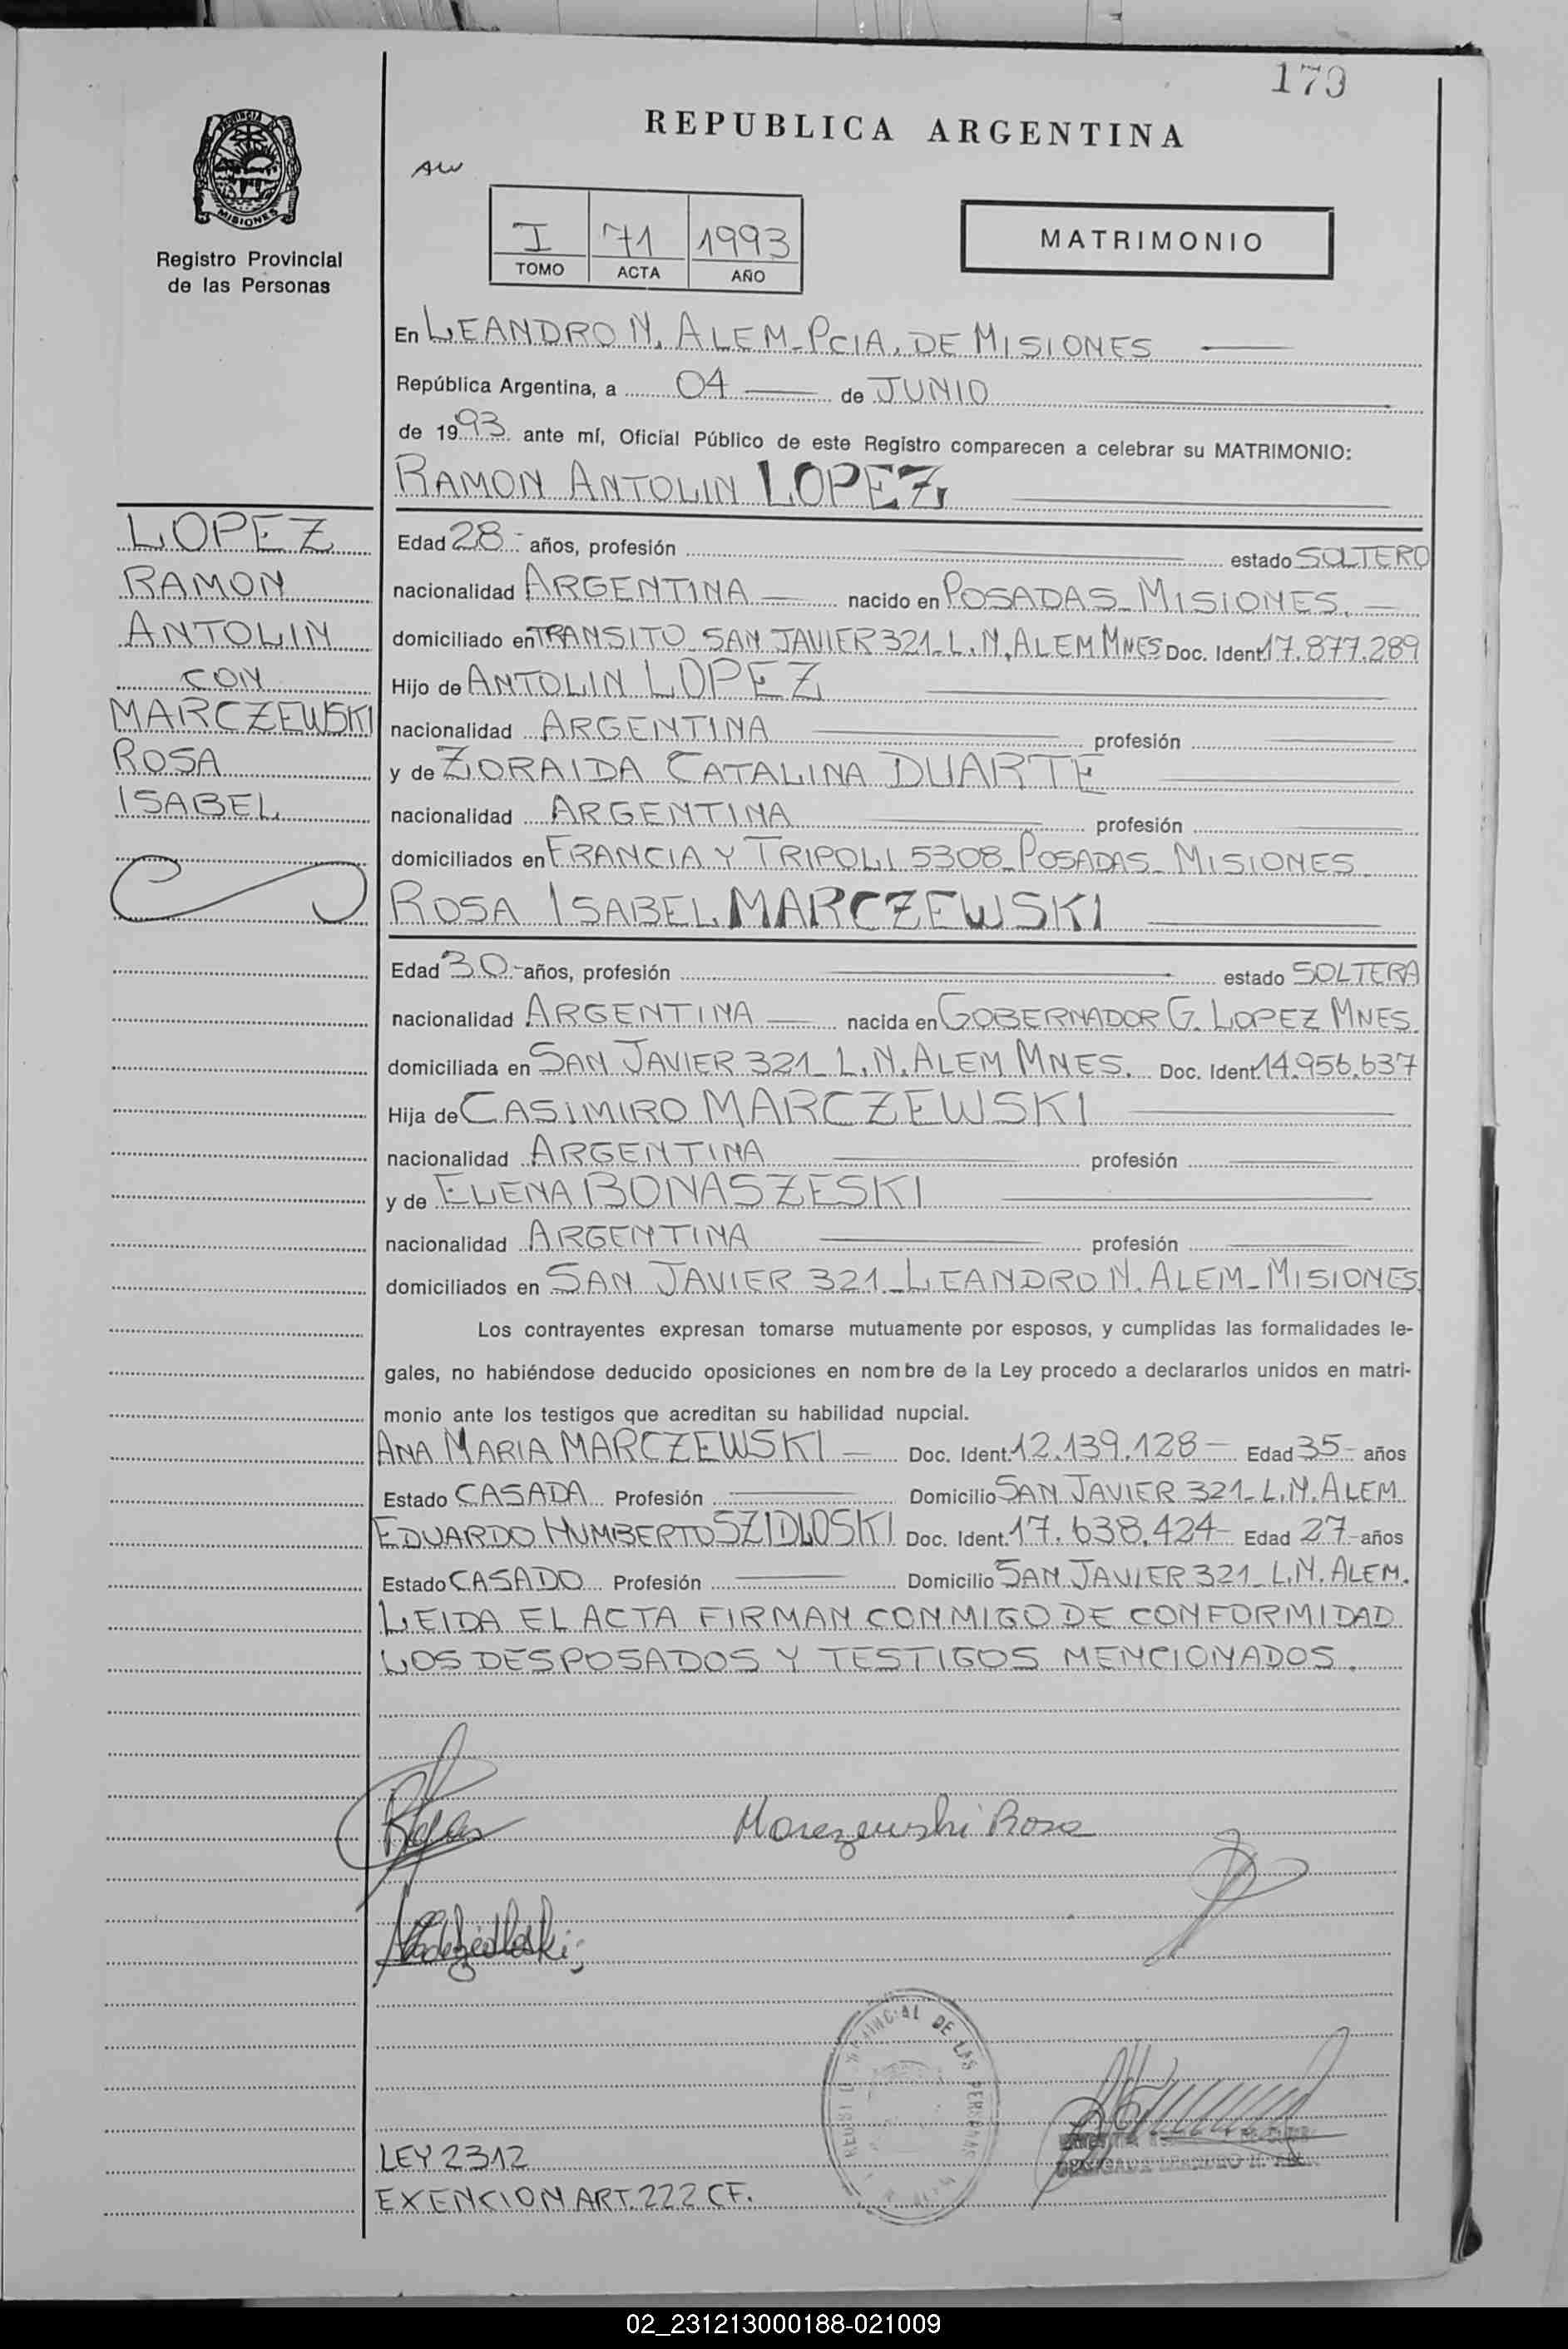 179
REPUBLICA ARGENTINA
AW
PROVINCIA DE
MISIONES
Registro Provincial
de las Personas
I 71 1993
TOMO ACTA AÑO
MATRIMONIO
En LEANDRO N. ALEM_PCIA. DE MISIONES
República Argentina, a 04 de JUNIO
de 1993 ante mí, Oficial Público de este Registro comparecen a celebrar su MATRIMONIO:
RAMON ANTOLIN LOPEZ
LOPEZ
RAMON
ANTOLIN
CON
MARCZEWSKI
ROSA
ISABEL
Edad 28- años, profesión estado SOLTERO
nacionalidad ARGENTINA nacido en POSADAS_MISIONES.
domiciliado en TRANSITO_SAN JAVIER 321_L.N.ALEM MNES Doc. Ident. 17.877.289
Hijo de ANTOLIN LOPEZ
nacionalidad ARGENTINA profesión
y de ZORAIDA CATALINA DUARTE
nacionalidad ARGENTINA profesión
domiciliados en FRANCIA Y TRIPOLI 5308_POSADAS_MISIONES
ROSA ISABEL MARCZEWSKI
Edad 30-años, profesión estado SOLTERA
nacionalidad ARGENTINA nacida en GOBERNADOR G. LOPEZ MNES.
domiciliada en SAN JAVIER 321_L.N.ALEM MNES. Doc. Ident. 14.956.637
Hija de CASIMIRO MARCZEWSKI
nacionalidad ARGENTINA profesión
y de ELENA BONASZESKI
nacionalidad ARGENTINA profesión
domiciliados en SAN JAVIER 321_LEANDRO N. ALEM_MISIONES
Los contrayentes expresan tomarse mutuamente por esposos, y cumplidas las formalidades le-
gales, no habiéndose deducido oposiciones en nombre de la Ley procedo a declararlos unidos en matri-
monio ante los testigos que acreditan su habilidad nupcial.
ANA MARIA MARCZEWSKI Doc. Ident. 12.139.128- Edad 35- años
Estado CASADA Profesión Domicilio SAN JAVIER 321_L.N.ALEM
EDUARDO HUMBERTO SZIDLOSKI Doc. Ident. 17.638.424- Edad 27-años
Estado CASADO Profesión Domicilio SAN JAVIER 321_L.N.ALEM.
LEIDA EL ACTA FIRMAN CONMIGO DE CONFORMIDAD
LOS DESPOSADOS Y TESTIGOS MENCIONADOS.
Marczewski Rosa
DE LAS PERSONAS
LEY 2312
EXENCION ART. 222 CF.
02_231213000188-021009